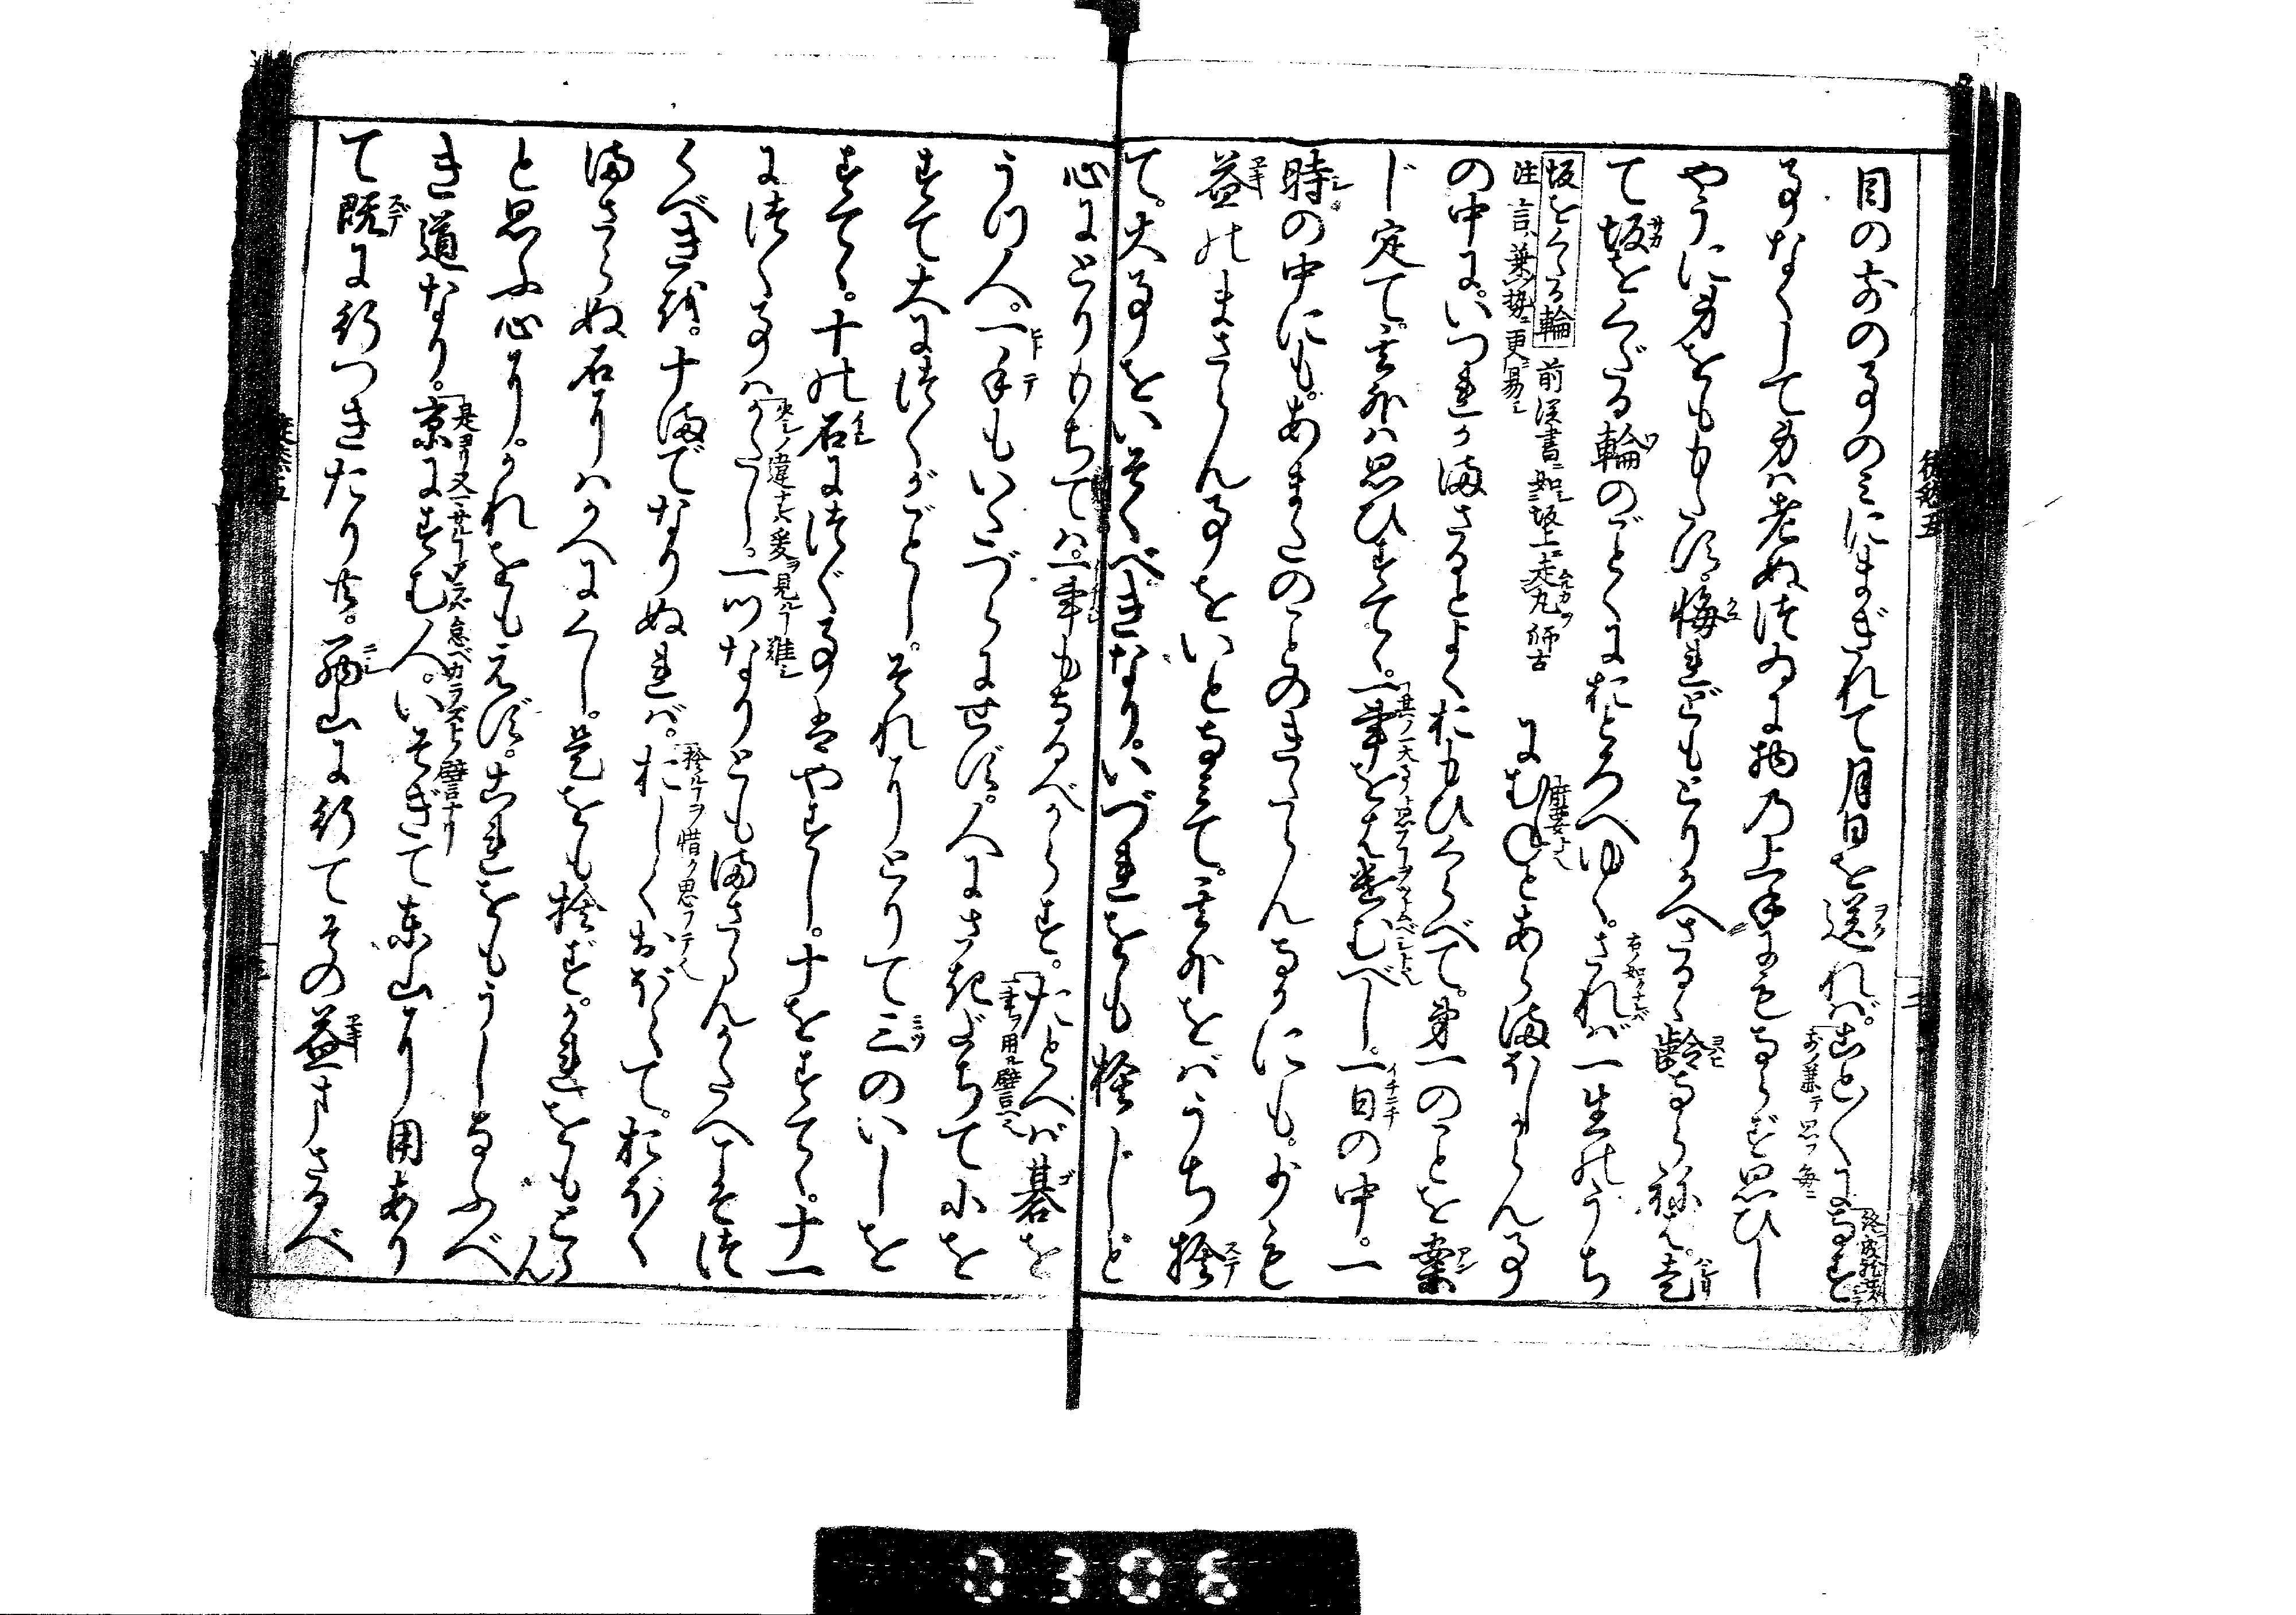 目の前の事のみにまぎれて月日を送れば。ことごとくなす
事なくして身は老ぬ。つゐに物の上手にもならず思ひし
やうに身をももたず。悔れどもとりかへさるゝ齢ならねば。走
て坂をくだる輪のごとくにおとろへゆく。されば一生のうち
坂をくだる輪 前漢書ニ如坂上走丸師古
注言乗勢更易
にむねとあらまほしからん事
の中に。いづれかまさるとよくおもひくらべて。第一のことを案
じ定て。其外は思ひすてゝ。一事をはげむべし。一日の中。一
時の中にも。あまたのことのきたらん中にも。少も
益のまさらん事をいとなみて。其外をばうち捨
て。大事をいそぐべきなり。いづれをも捨じと
心にとりもちては。一事もなるべからず。たとへば碁を
うつ人。一手もいたづらにせず。人にさきだちて小を
すて大につくがごとし。それにとりて三のいしを
すてゝ。十の石につくことはやすし。十をすてゝ。十一
につく事はかたし。一つなりともまさらんかたへこそつ
くべきを。十までなりぬれば。おしくおぼえて。おほく
まさらぬ石にはかへにくし。是をも捨ず。かれをもとらん
と思ふ心に。かれをもえず。これをもうしなふべ
き道なり。京にすむ人。いそぎて東山に用あり
て既に行つきたりとも。西山に行てその益まさるべ